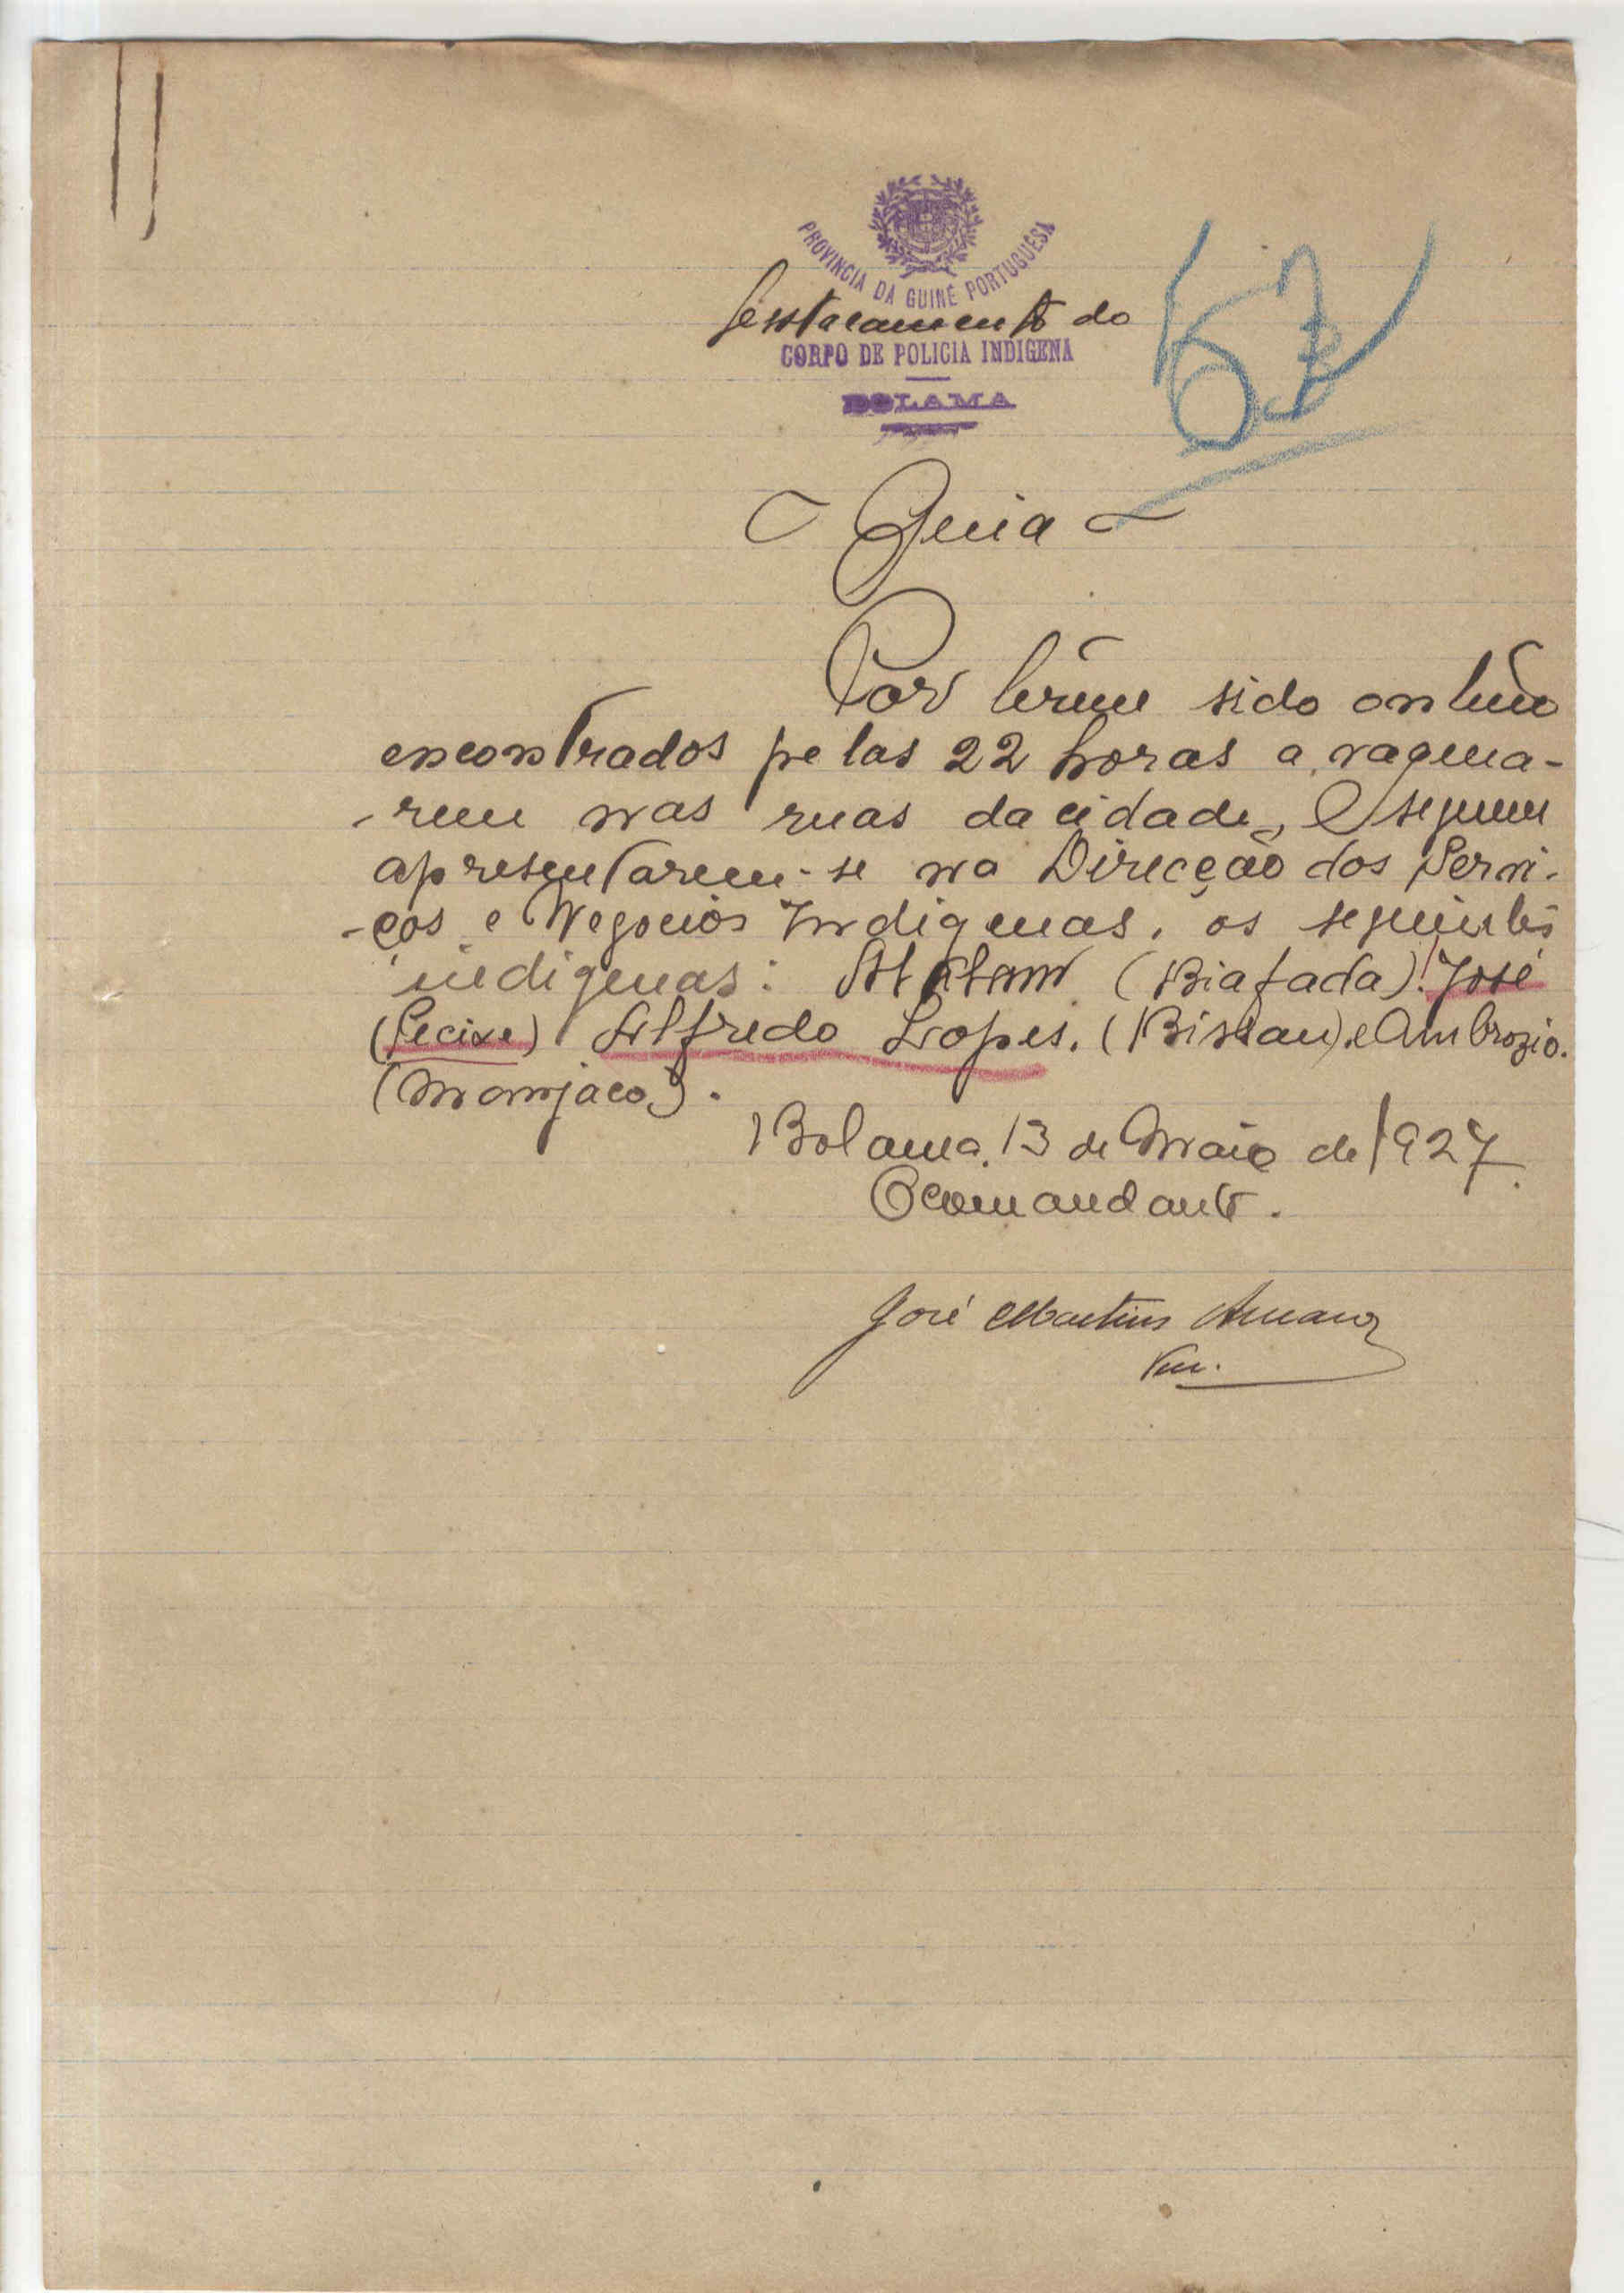 PROVINCIA DA GUINÉ PORTUGUÊSA
Destacamento do
CORPO DE POLICIA INDIGENA
BOLAMA
Guia
Por terem sido ontem
encontrados pelas 22 horas a vagua-
-rem nas ruas da cidade, seguem
apresentarem-se na Direcção dos Servi-
-ços e Negocios Indigenas, os seguintes
indigenas: (Biafada). José
(Pecixe) Alfredo Lopes. (Bissau) e Ambrozio.
(Manjaco).
Bolama, 13 de Maio de 1927.
O comandante.
José Martins